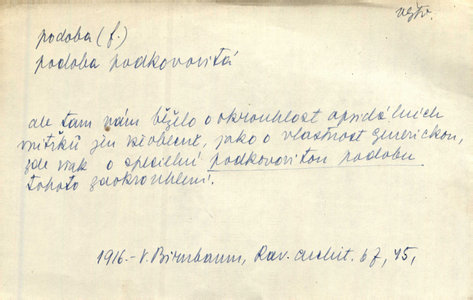 výtv.
podoba (f.)
podoba podkovovitá
ale tam vám běželo o okrouhlost apsidálních
vnitřků jen všobecně, jako o vlastnost generickou,
zde však o specielní podkovovitou podobu
tohoto zaokrouhlení.
1916.- V. Birnbaum, Rav. archit. 67, 45,